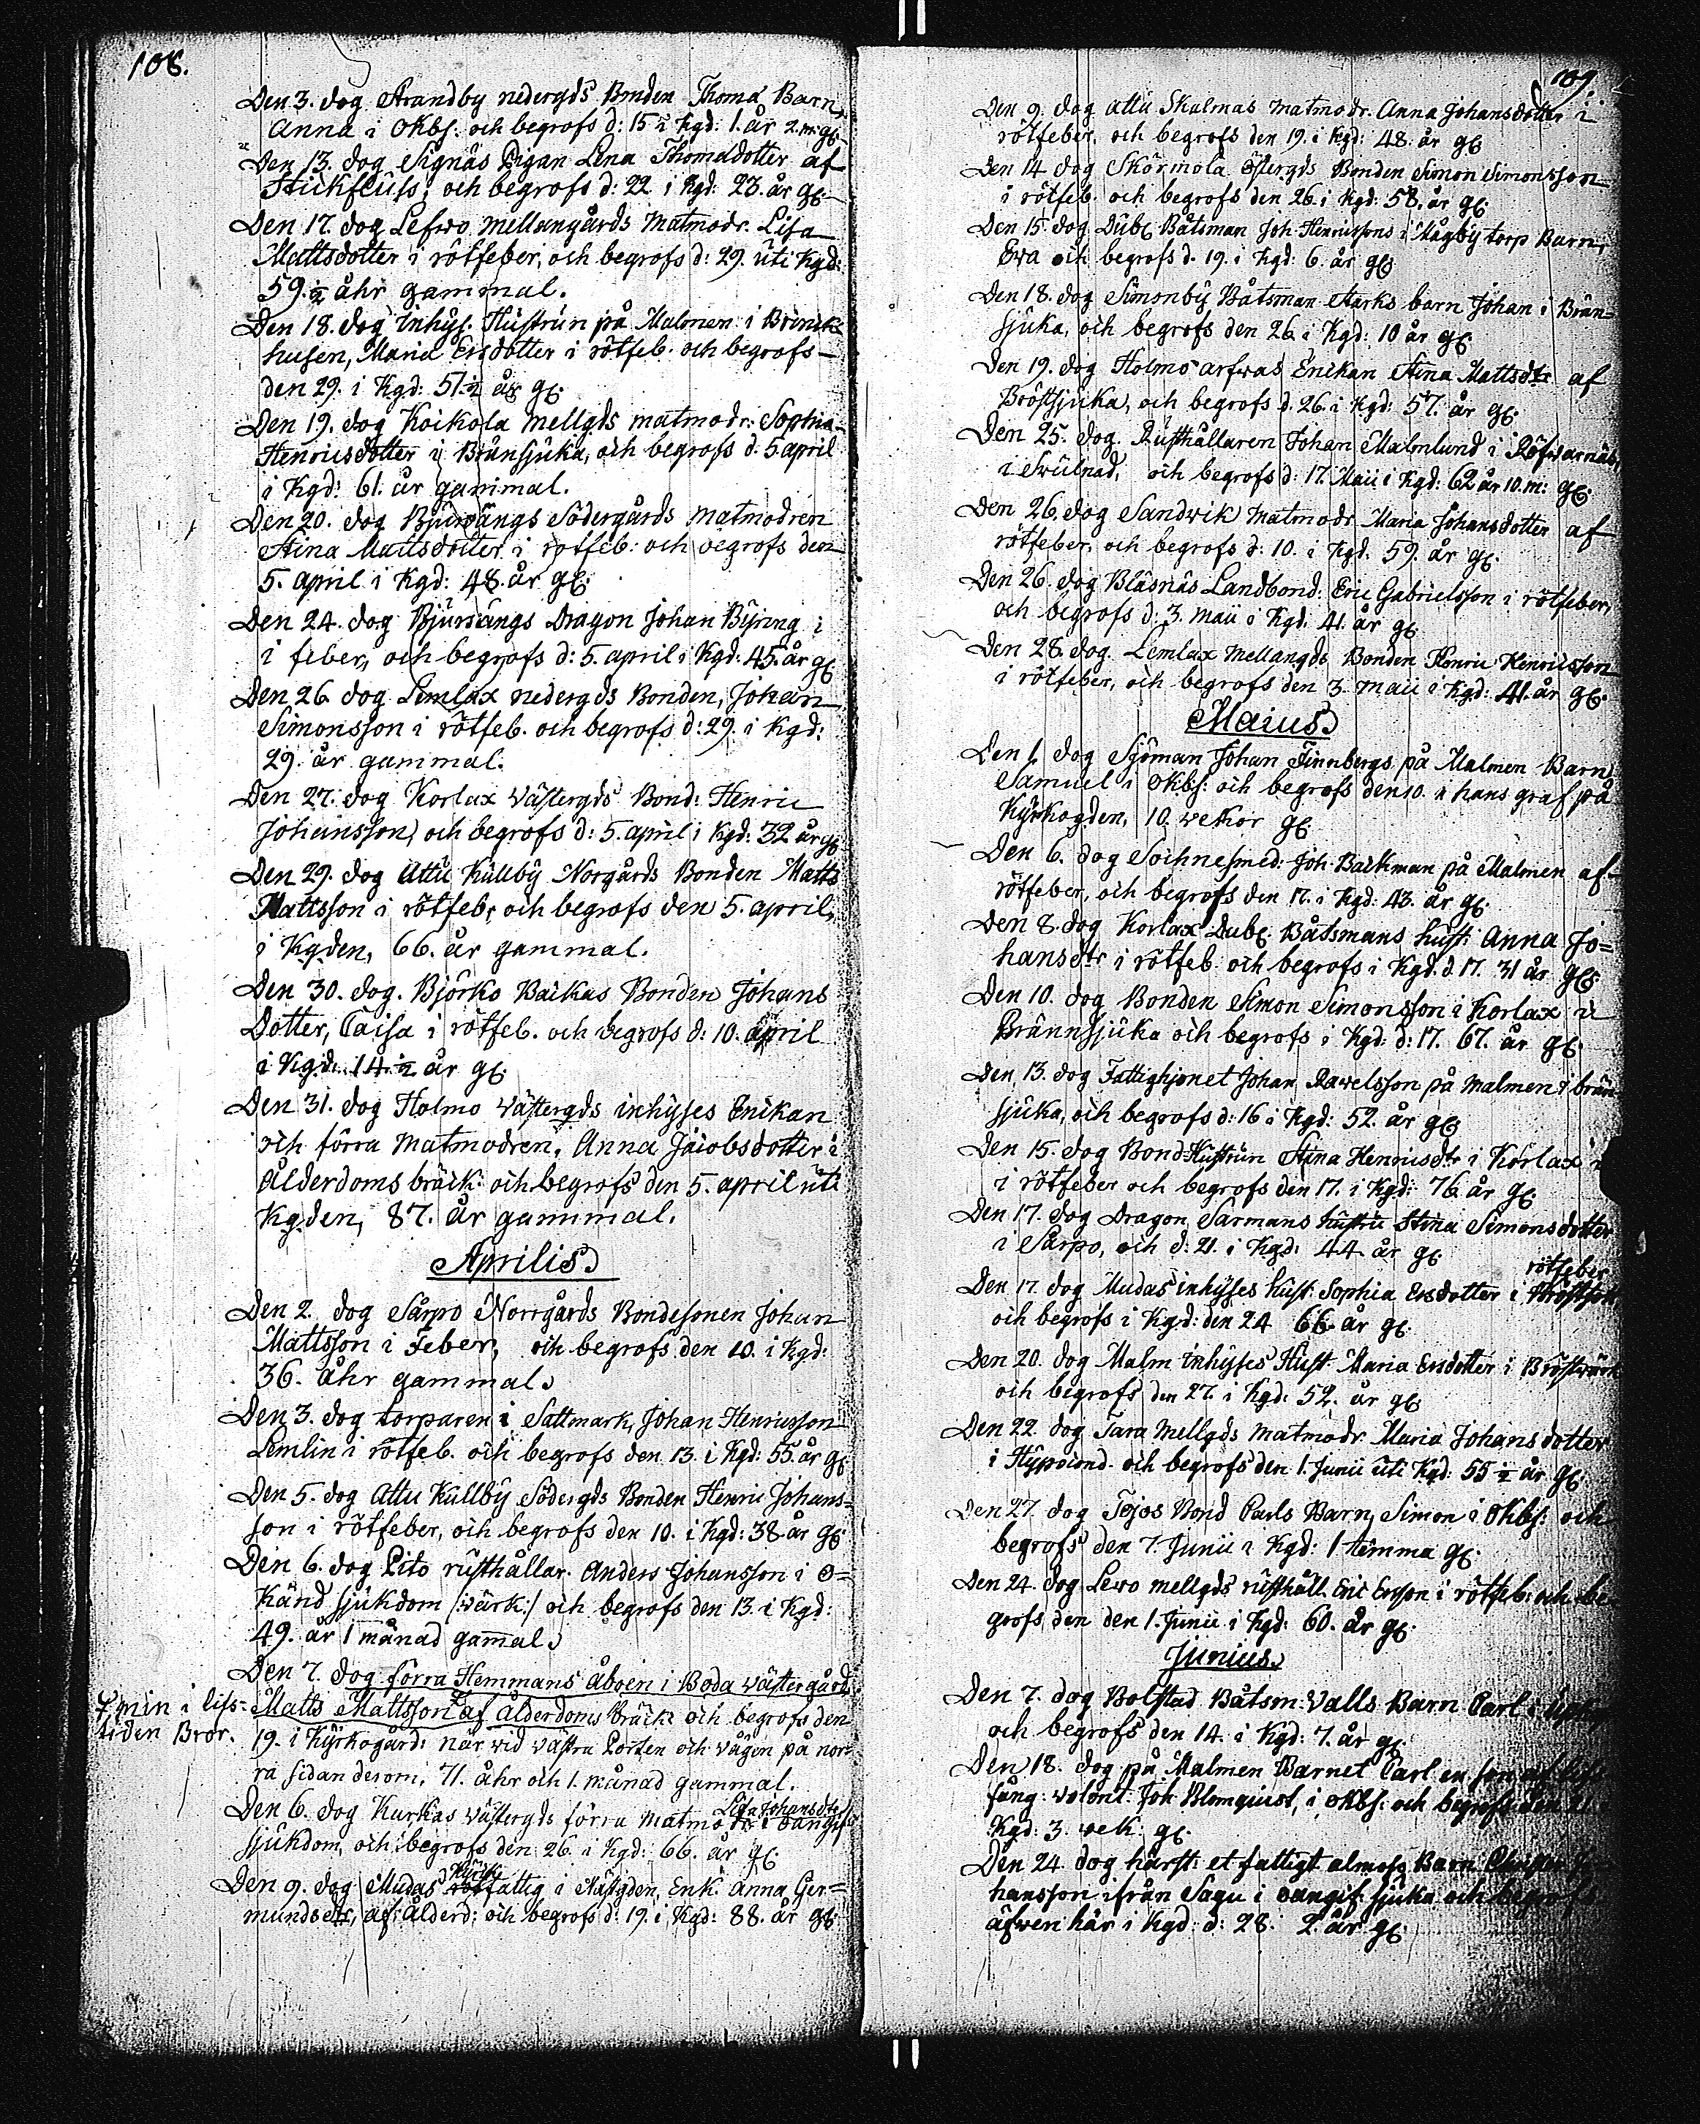 108.
Den 3. dog Strandby nedergds Bonden Thoma Barn
Anna i Okbs. och begrofs d: 15 i Kgd: 1. år 2. m: gl.
Den 13. dog Signäs Pigan Lena Thomædotter af
Stickfluss, och begrofs d: 22 i Kgd: 23. år gl.
Den 17. dog Lefwo mellangårds Matmodr. Lisa
Mattsdotter i rötfeber, och begrofs d: 29. uti Kgd:
59. ½ åhr gammal.
Den 18. dog inhys. Hustrun på Malmen i
husen, Maria Ersdotter i rötfeb. och begrofs
den 29. i Kgd: 51. ½ år gl.
Den 19. dog Koikola mellgds matmodr: Sophia
Henricsdotter i Brånsjuka, och begrofs d. 5 april
i Kgd: 61. år gammal.
Den 20. dog Bjursängs Södergårds matmodren
Stina Mattsdotter i rötfeb: och begrofs den
5. april i Kgd: 48. år gl.
Den 24. dog Bjursängs Dragon Johan Byring i
i feber, och begrofs d: 5. april i Kgd: 45. år gl
Den 26 dog Lemlax nedergds Bonden, Johan
Simonsson i rötfeb. och begrofs d: 29. i Kgd:
29. år gammal.
Den 27. dog Korlax Västergds Bond: Henric
Johansson, och begrofs d: 5. april i Kgd: 32 år gl
Den 29. dog Attu Kullby Norgårds Bonden Matts
Mattsson i rötfeb, och begrofs den 5. april,
i Kgden, 66. år gammal.
Den 30. dog. Björkö Backas Bonden Johans
Dotter, Caisa i rötfeb. och begrofs d: 10. april
i Kgd: 14. ½ år gl.
Den 31. dog Holmo Västergds inhyses Enckan
och förra matmodren, Anna Jacobsdotter i
Ålderdoms bräck: och begrofs den 5. april uti
Kgden, 87. år gammal.
Aprilis
Den 2. dog Sårpo Norrgårds Bondesonen Johan
Mattsson i Feber, och begrofs den 10. i Kgd:
36. åhr gammal.
Den 3. dog torparen i Sattmark, Johan Henricsson
Lemlin i rötfeb. och begrofs den 13. i Kgd: 55. år gl
Den 5. dog Attu Kullby Södergds Bonden Henric Johans=
son i rötfeber, och begrofs den 10. i Kgd: 38 år gl.
Den 6. dog Pito rusthållar. Anders Johansson i o=
känd sjukdom /:wärk:/ och begrofs den 13. i Kgd:
49. år 1 månad gammal.
Den 7. dog förra Hemmans åboen i Boda Västergård
Matts Mattsson af Ålderdoms bräck och begrofs den
min i lifs=
tiden Bror.
19. i Kyrkogård: när wid västra Porten och vägen på nor=
ra sidan derom, 71. åhr och 1. månad gammal.
Den 6. dog Kurkas Västergds förra matmo Lisa Johansdtr i oangif
sjukdom, och begrofs den 26. i Kgd: 66. år gl.
Den 9. dog Mudas Kyrk fattig i Nästgden, Enk: Anna Ger=
mundsdtr, af Ålderd: och begrofs d: 19. i Kgd: 88. år gl.
109.
Den 9. dog attu Skalmas matmodr. Anna Johansdotter i
rötfeber. och begrofs den 19. i Kgd: 48. år gl.
Den 14 dog Skärmola Östergds Bonden Simon Simonsson
i rötfeb. och begrofs den 26. i Kgd: 58. år gl.
Den 15. dog Dubl Båtsman Joh Henricssons i Mågby torp Barn,
Eva och begrofs d. 19. i Kgd: 6. år gl.
Den 18. dog Simonby Båtsman Starks barn Johan i Brän=
sjuka, och begrofs den 26. i Kgd: 10 år gl.
Den 19. dog Holmo arfwas Enckan Stina Mattsdtr af
Bröstsjuka, och begrofs d. 26. i Kgd: 57. år gl.
Den 25. dog Rusthållaren Johan Malmlund i
i swulnad, och begrofs d: 17. Maii i Kgd: 62 år 10. m: gl.
Den 26. dog Sandwik matmodr Maria Johansdotter af
rötfeber, och begrofs d: 10. i Kgd: 59. år gl.
Den 26. dog Bläsnäs Landbond: Eric Gabrielsson i rötfeber,
och begrofs d: 3. maii i Kgd. 41. år gl
Den 28. dog Lemlax mellangds Bonden Henric Henricsson
i rötfeber, och begrofs den 3. maii i Kgd: 41. år gl.
Maius
Den 1. dog Sjöman Johan Finnbergs på Malmen Barn
Samuel i Okbs: och begrofs den 10. i hans graf på
Kyrkogden, 10. wekor gl
Den 6. dog Sochnesmed: Joh: Backman på Malmen af
rötfeber, och begrofs den 17. i Kgd: 43. år gl.
Den 8. dog Korlax Dubl. Båtsmans hust: Anna Jo=
hansdtr i rötfeb. och begrofs i Kgd. d. 17. 31 år gl.
Den 10. dog Bonden Simon Simonsson i Korlax i
Brännsjuka och begrofs i Kgd: d: 17. 67. år gl.
Den 13. dog Fattighjonet Johan Pawelsson på malmen i brän
sjuka, och begrofs d: 16 i Kgd: 52. år gl
Den 15. dog Bond Hustrun Stina Henricsdtr i Korlax
i rötfeber och begrofs den 17. i Kgd: 76 år gl.
Den 17. dog Dragon Sarmans hustru Stina Simonsdotter
i Sårpo, och d: 21. i Kgd: 44 år gl.
rötfeber
Den 17. dog Mudas inhyses hust. Sophia Ersdotter i
och begrofs i Kgd: den 24 66 år gl.
Den 20. dog Malm inhyses Hust. Maria Ersdotter i Bröstwärk
och begrofs den 27. i Kgd: 52. år gl
Den 22. dog Tara Mellgds matmodr Maria Johansdotter
i Hypocond. och begrofs den 1. Junii uti Kgd: 55 ½ år gl.
Den 27. dog Tejos Bond Carls Barn, Simon i Okbs: och
begrofs den 7. Junii i Kgd: 1 timma gl.
Den 24. dog Lewo mellgds rusthåll. Eric Ersson i rötfeb: och be
grofs den den 1. Junii i Kgd: 60. år gl.
Junius
Den 7. dog Bolstad Båtsm: Valls Barn Carl i
och begrofs den 14. i Kgd: 7. år gl.
Den 18. dog på Malmen Barnet Carl en son
fång: volont: Joh Blomquist, i okbs: och begrofs den
Kgd: 3. wek: gl.
Den 24 dog härst: et fattigt almoso Barn
hansson ifrån Sagu i oangif. sjuka och begrofs
äfwen här i Kgd: d: 28. 2. år gl.